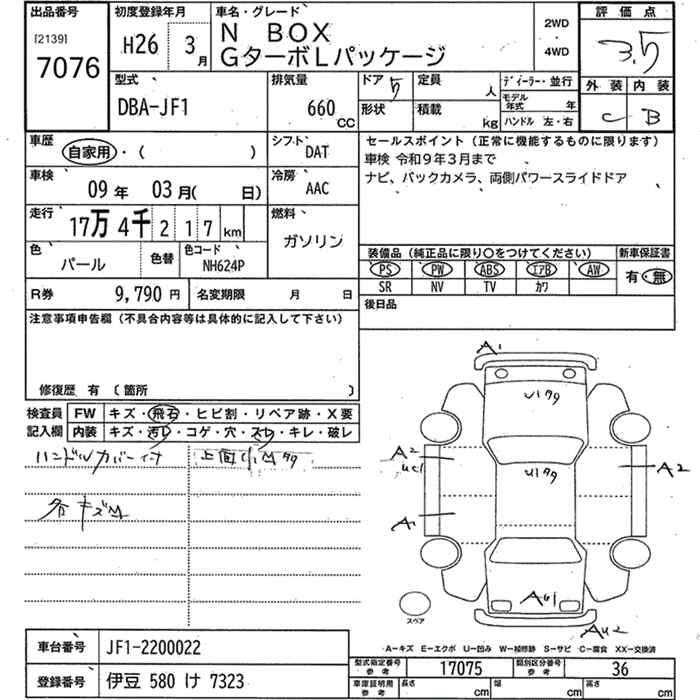 出品番号 初度登録年月 車名・グレード 評価点
[2139] 7076 H26 3月 N BOX 2WD・4WD 3.5
GターボLパッケージ
外装 内装
C B
型式 排気量 ドア 5 定員 人 ディーラー・並行
DBA-JF1 660cc 形状 積載 kg モデル年式 年
ハンドル 左・右
車歴 シフト セールスポイント(正常に機能するものに限ります)
自家用・( ) DAT 車検 令和9年3月まで
車検 冷房 ナビ、バックカメラ、両側パワースライドドア
09年 03月( 日) AAC
走行 燃料
17万 4千 2 1 7 km ガソリン
色 色替 色コード 装備品(純正品に限り○をつけてください) 新車保証書
パール NH624P PS PW ABS エアB AW 有・無
SR NV TV カワ
R券 9,790円 名変期限 月 日 後日品
注意事項申告欄(不具合内容等は具体的に記入して下さい)
修復歴 有 〔箇所 〕
検査員 FW キズ・飛石・ヒビ割・リペア跡・X要
記入欄 内装 キズ・汚レ・コゲ・穴・スレ・キレ・破レ
ハンドルカバー付 上面小凹タタ
各キズ凹
A1
U1タタ
A2
UC1
U1タタ
A2
A1
AU1
スペア
AU2
A-キズ E-エクボ U-凹み W-補修跡 S-サビ C-腐食 XX-交換済
車台番号 JF1-2200022
型式指定番号 参考 17075 類別区分番号 参考 36
登録番号 伊豆 580 け 7323
車庫証明用 参考 長さ cm 幅 cm 高さ cm